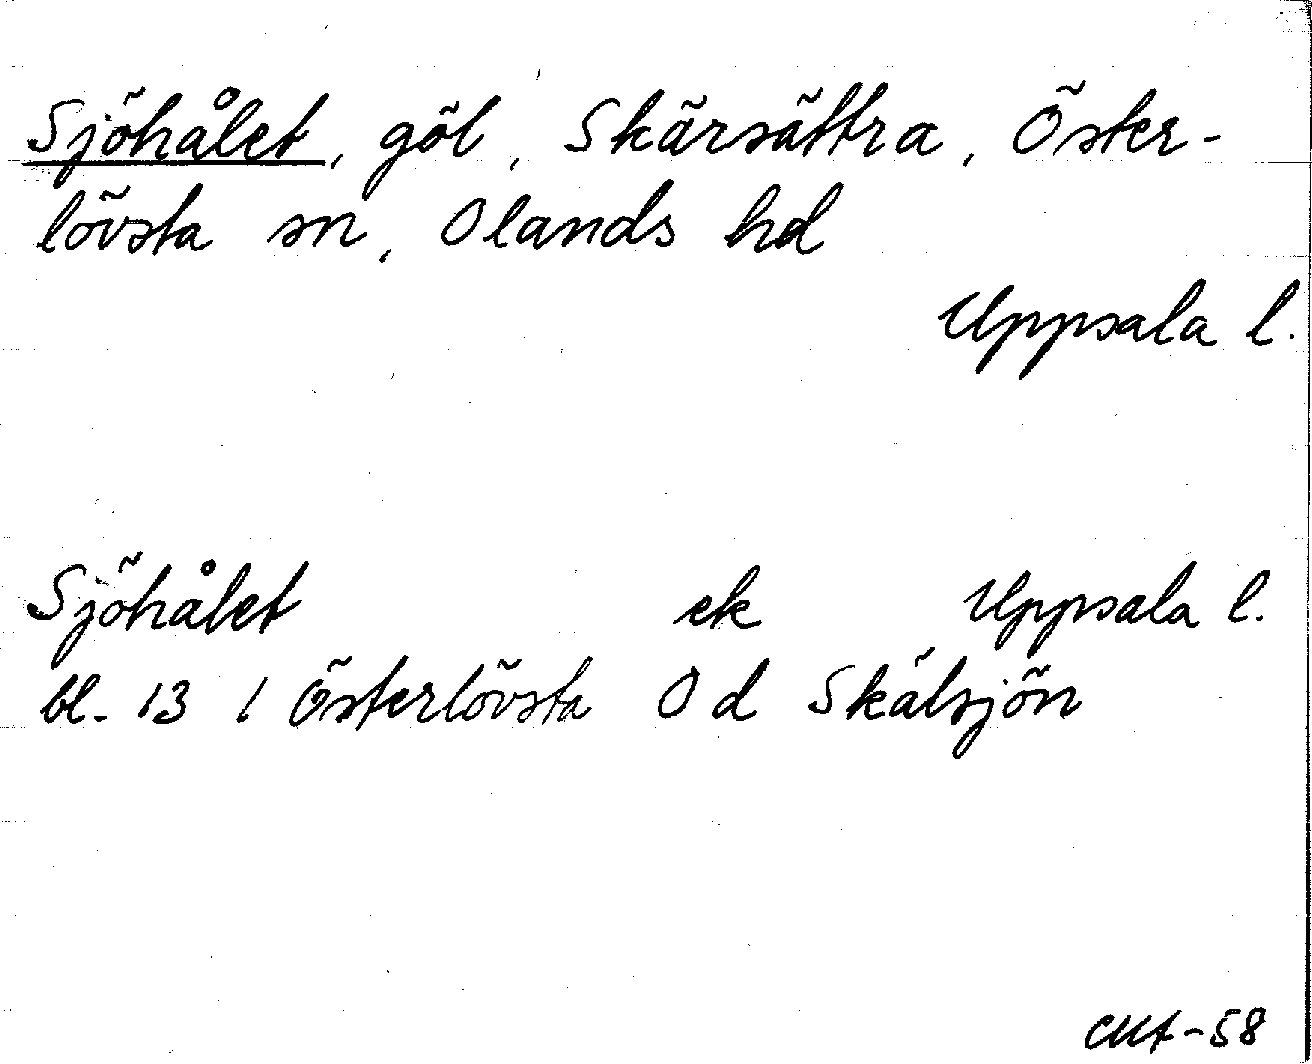 Sjöhålet, göl, Skärsättra, Öster-
lövsta sn, Olands hd
Uppsala l.
Sjöhålet ek Uppsala l.
bl. 13 l Österlövsta Od Skälsjön